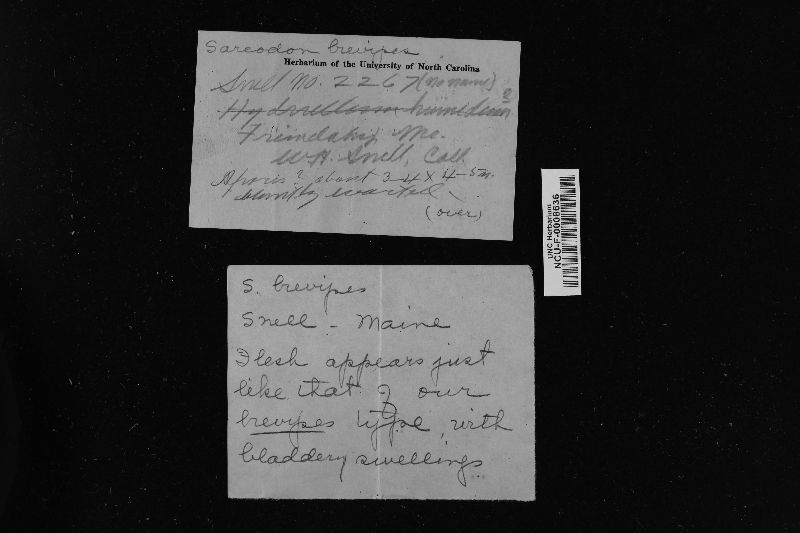 Sarcodon brevipes
Herbarium of the University of North Carolina
Snell No. 2267 (no name)
?
Friendship, Me.
W.H. Snell, Coll.
about 3-4 x 4-5 m.
bluntly warted
(over)
UNC Herbarium
NCU-F-0008636
S. brevipes
Snell - Maine
Flesh appears just
like that of our
brevipes type, with
bladdery swellings